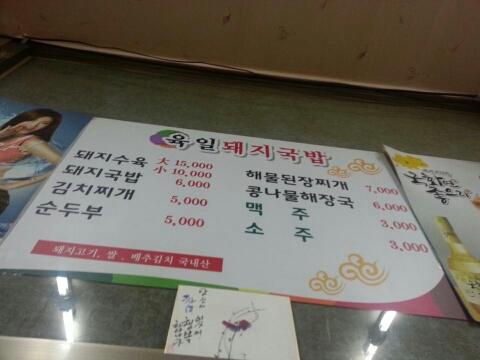 육일돼지국밥
돼지수육 大 15,000
小 10,000
돼지국밥 6,000
김치찌개 5,000
순두부 5,000
해물된장찌개 7,000
콩나물해장국 6,000
맥 주 3,000
소 주 3,000
돼지고기, 쌀, 배추김치 국내산